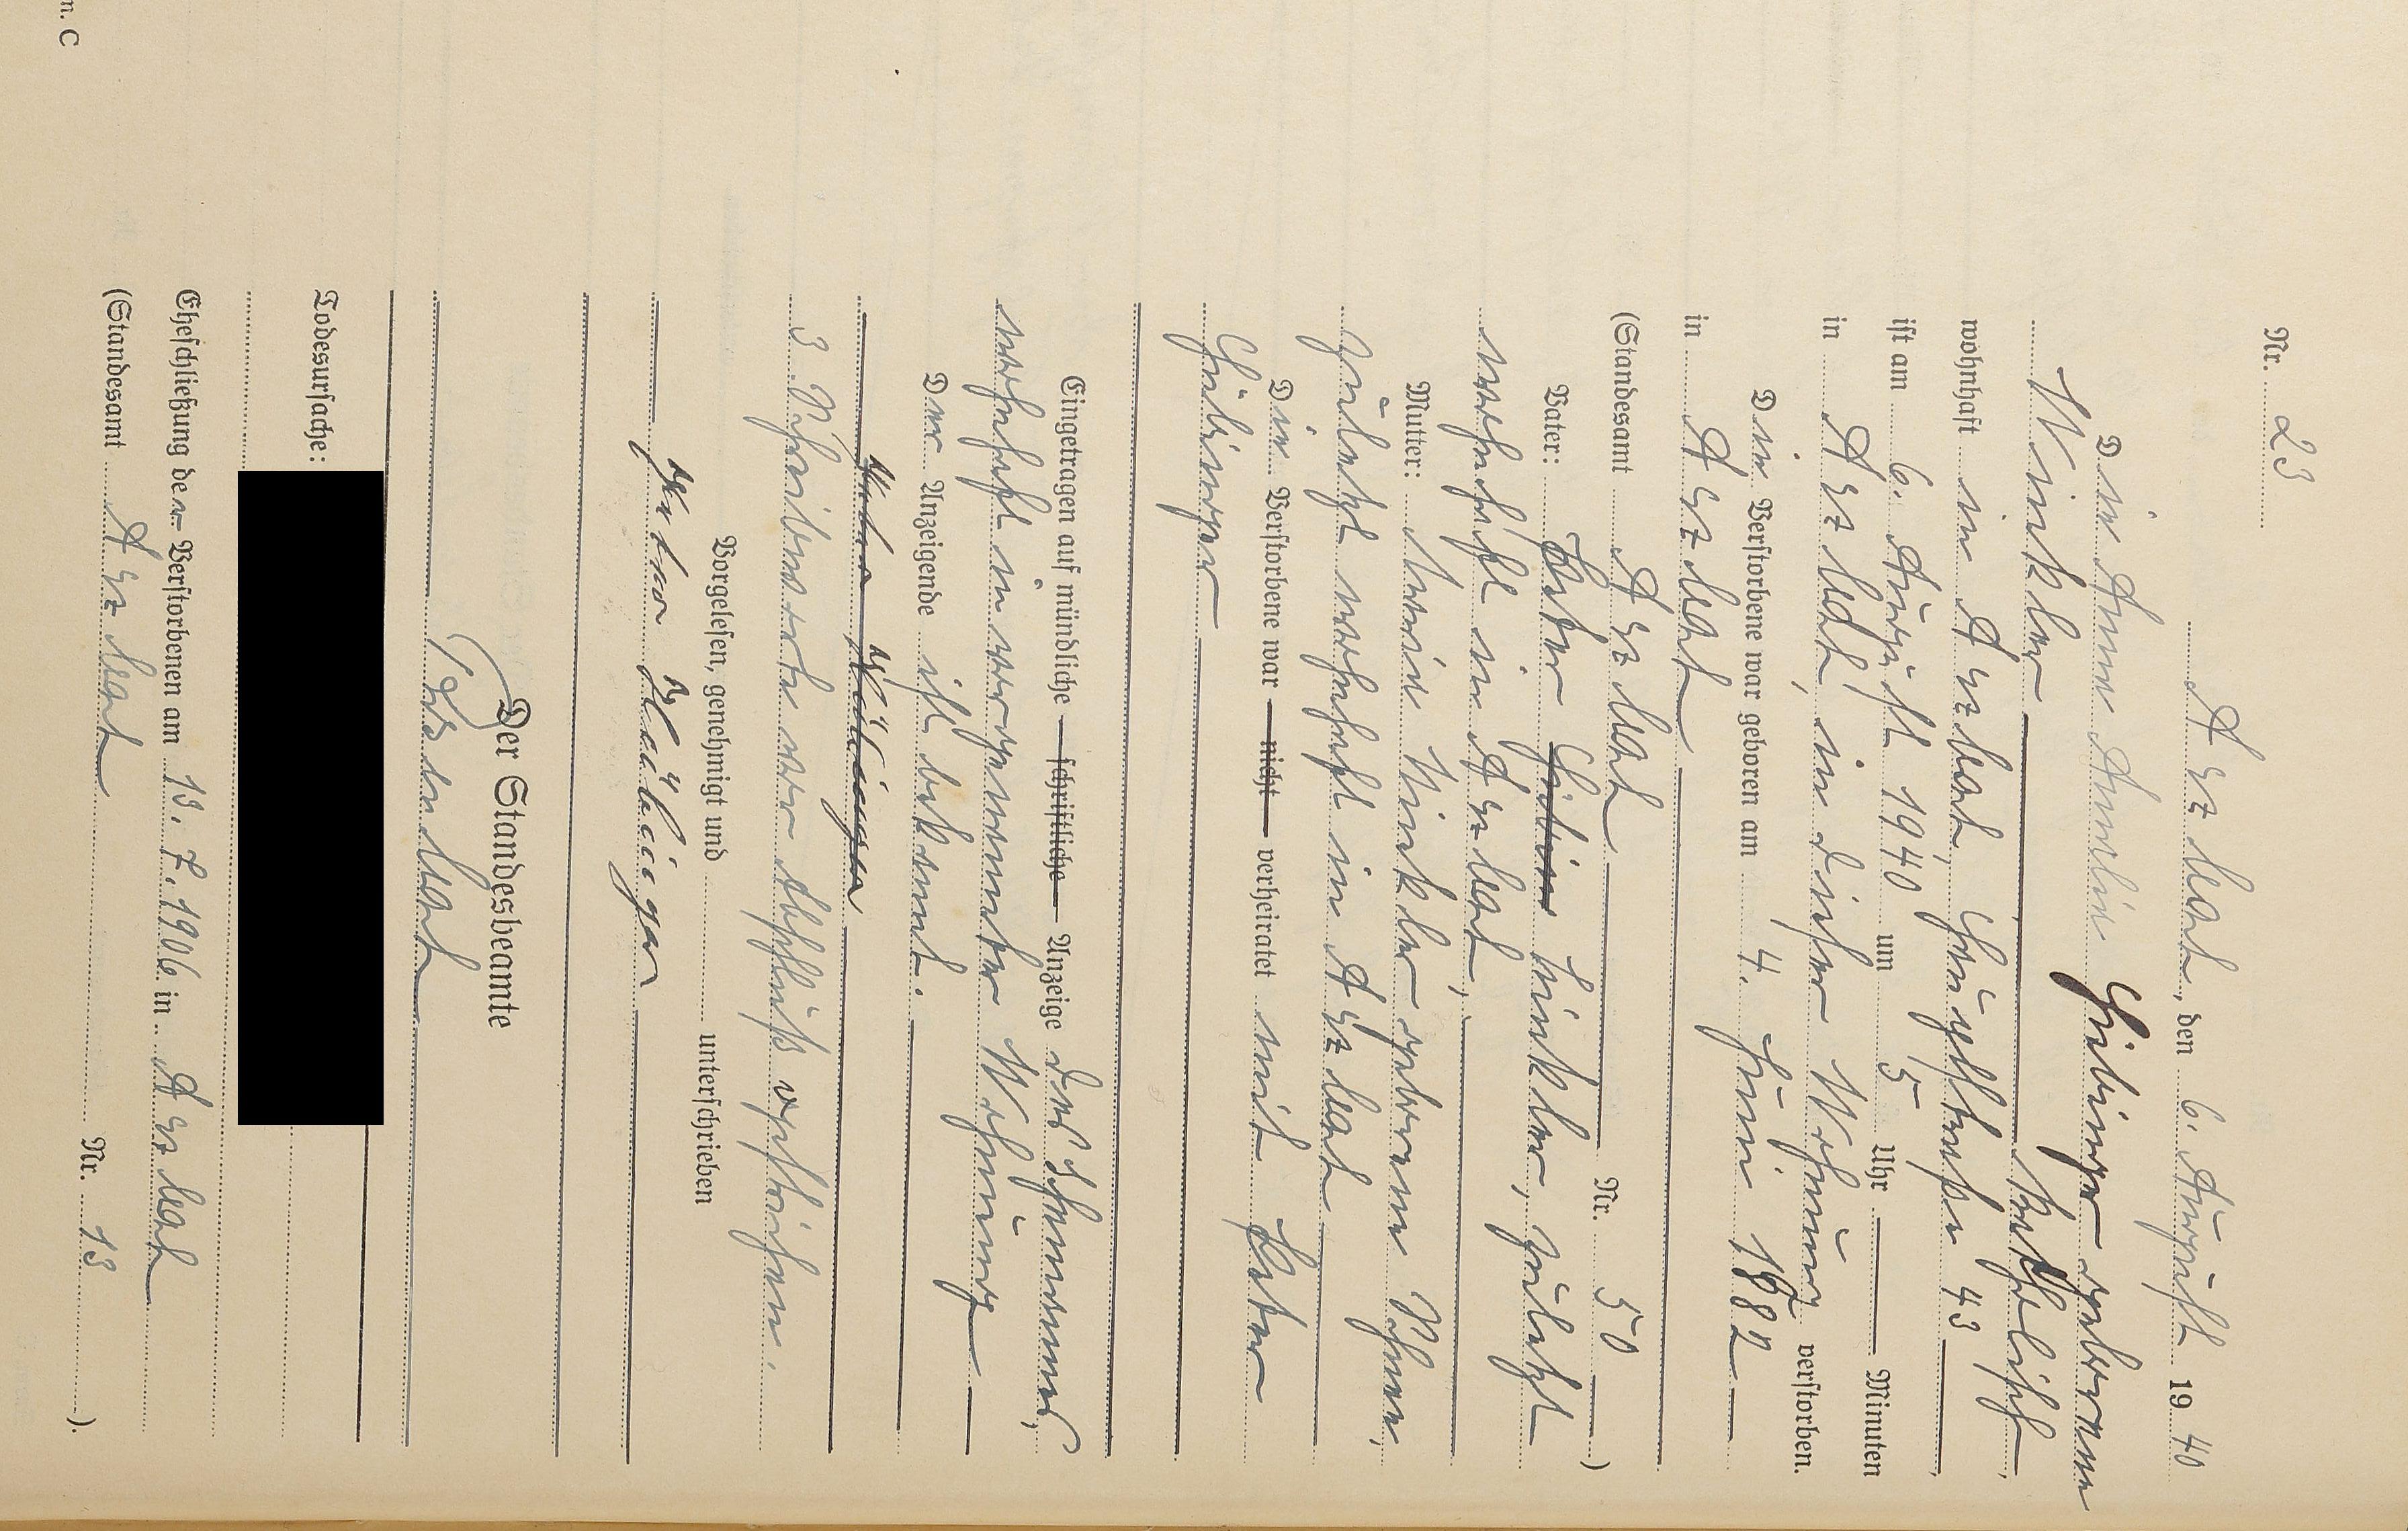 Nr. 23
Arzbach, den 6. August 1940
Die Anna Amalia Hübinger geborene
Winkler Katholisch
wohnhaft in Arzbach, Hauptstraße 43
ist am 6. August 1940 um 5 Uhr Minuten
in Arzbach, in dieser Wohnung verstorben.
Die Verstorbene war geboren am 4. Juni 1882
in Arzbach
(Standesamt Arzbach Nr. 50)
Vater: Peter Winkler, zuletzt
wohnhaft in Arzbach,
Mutter: Maria Winkler geborene
zuletzt wohnhaft in Arzbach
Die Verstorbene war nicht verheiratet mit Peter
Hübinger
Eingetragen auf mündliche schriftliche Anzeige des Ehemannes,
wohnhaft in vorgenannter Wohnung
Der Anzeigende ist bekannt.
Peter Hübinger
3 von Abschluß gestrichen.
Vorgelesen, genehmigt und unterschrieben
Peter Hübinger
Der Standesbeamte
Todesursache:
Eheschließung der Verstorbenen am 13. 7. 1906 in Arzbach
(Standesamt Arzbach Nr. 13).
n. C